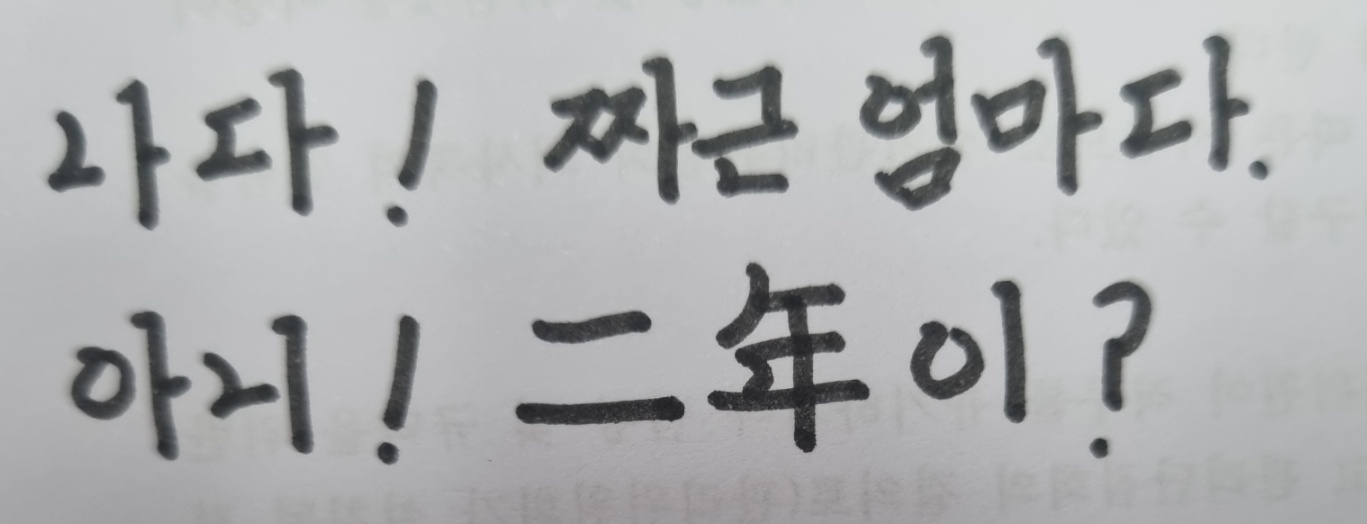 나다! 짜근 엄마다.
아니! 二年이?